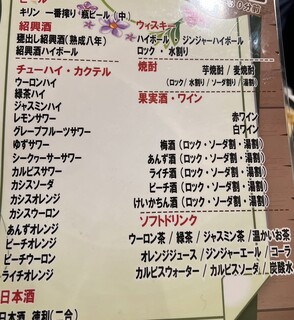 ビール
キリン 一番搾り・瓶ビール(中)
紹興酒
甕出し紹興酒(熟成八年)
紹興酒ハイボール
チューハイ・カクテル
ウーロンハイ
緑茶ハイ
ジャスミンハイ
レモンサワー
グレープフルーツサワー
ゆずサワー
シークヮーサーサワー
カルピスサワー
カシスソーダ
カシスオレンジ
カシスウーロン
あんずオレンジ
ピーチオレンジ
ピーチウーロン
ライチオレンジ
日本酒
日本酒 徳利(二合)
30分前
ウィスキー
ハイボール / ジンジャーハイボール
ロック ・ 水割り
焼酎
芋焼酎 / 麦焼酎
(ロック/ 水割り / ソーダ割り / 湯割)
果実酒・ワイン
赤ワイン
白ワイン
梅酒 (ロック・ソーダ割・湯割)
あんず酒 (ロック・ソーダ割・湯割)
ライチ酒 (ロック・ソーダ割・湯割)
ピーチ酒 (ロック・ソーダ割・湯割)
けいかちん酒 (ロック・ソーダ割・湯割)
ソフトドリンク
ウーロン茶 / 緑茶 / ジャスミン茶 / 温かいお茶
オレンジジュース / ジンジャーエール / コーラ
カルピスウォーター / カルピスソーダ / 炭酸水